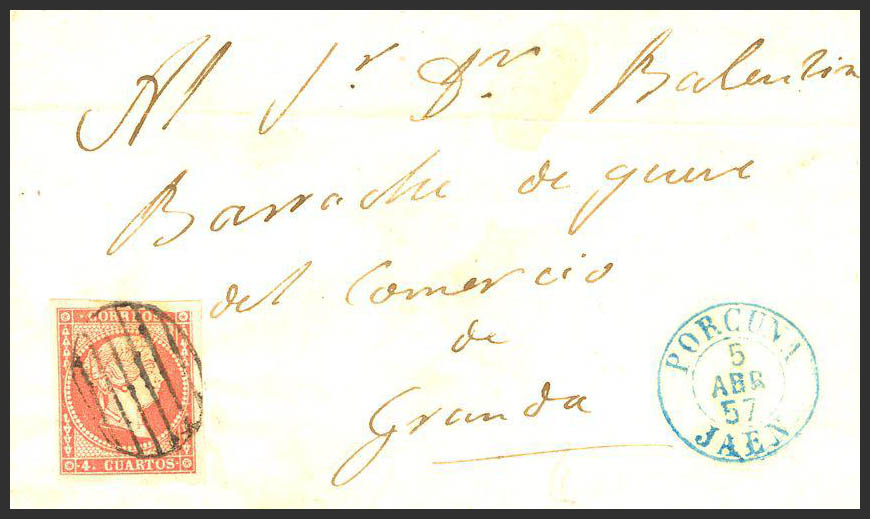 Al Sr Dn Balentin
Barrache de
del Comercio
de
Granda
CORREOS
4. CUARTOS
PORCUNA
5
ABR
57
JAEN